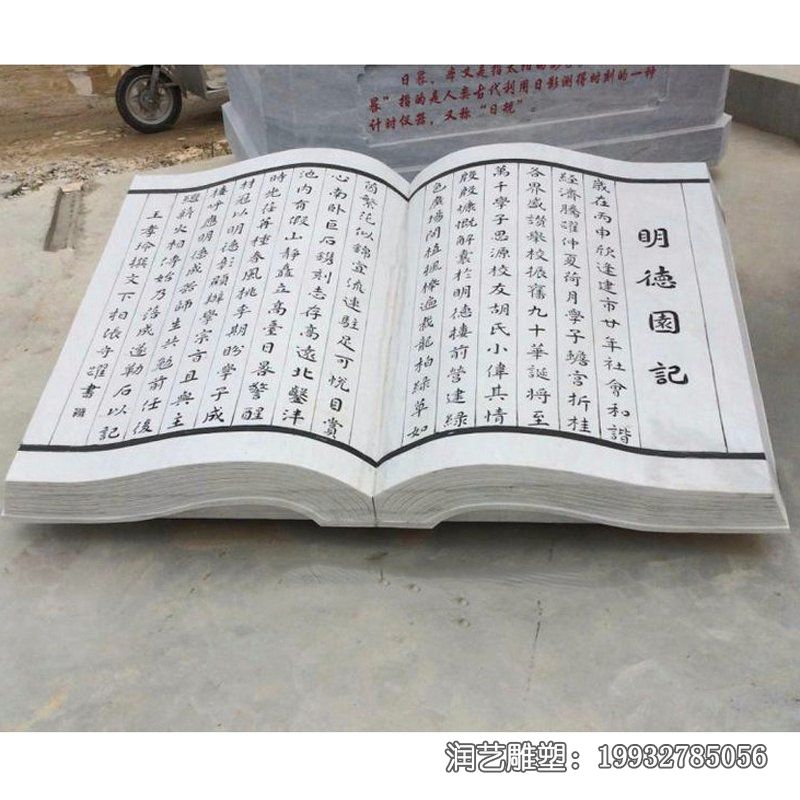 日晷，本义是指太阳的影
晷”指的是人类古代利用日影测得时刻的一种
计时仪器，又称“日规”。
明德園記
歲在丙申欣逢建市廿年社會和諧
經濟騰躍仲夏荷月學子蟾宫折桂
各界盛讚譽校振舊九十華誕將至
萬千學子思源校友胡氏小偉其情
殷殷慷慨解囊於明德樓前營建綠
色廣場間植楓櫸遍栽龍柏綠草如
茵繁花似錦宣流連駐足可悦目賞
心南卧巨石鎸刻志存高遠北鑿沣
池内有假山静矗立高臺日晷警醒
時光荏苒種春風桃李期盼學子成
材冠以明德彰顯辦學宗旨且與主
樓呼應明德成器師生共勉前任後
繼薪火相傳始乃落成遂勒石以記
王孝玲撰文下相張守躍書
润艺雕塑：19932785056